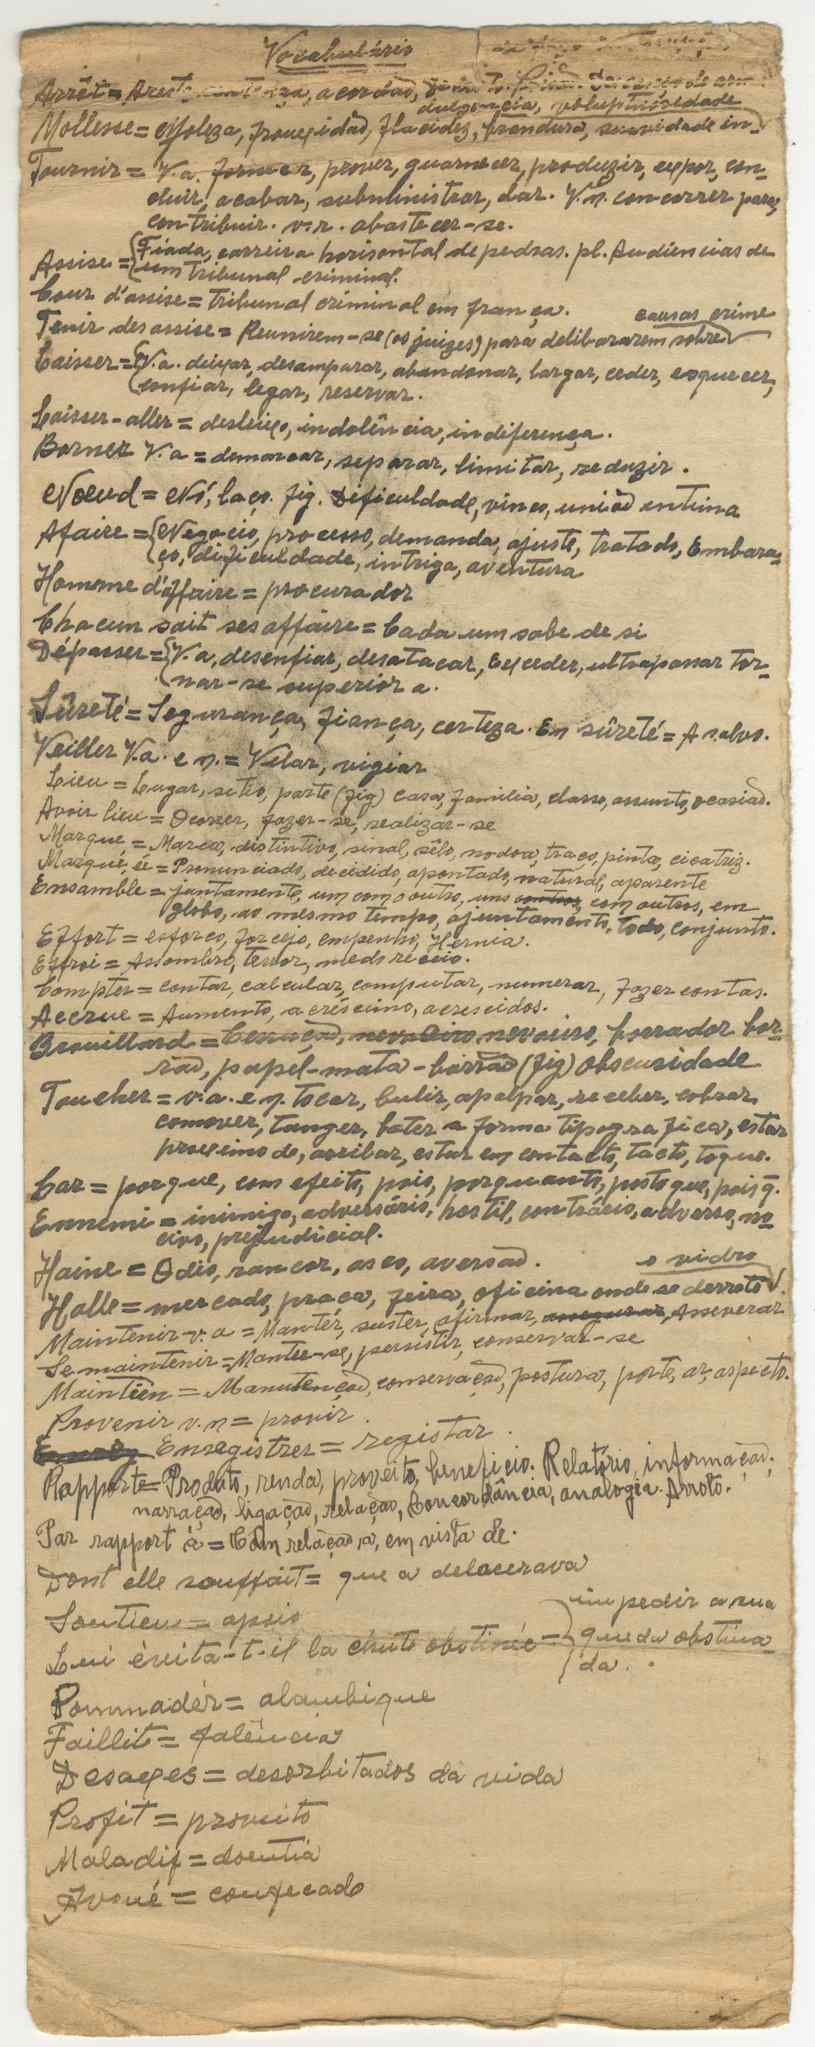 Vocabulário
Arrêt = Aresto, acordaõ,
dulgencia, voluptuosidade
Mollesse = Moleza, frouxidaõ, flacidez, brandura, suavidade in-
Fournir = V.a. fornecer, prover, guarnecer, produzir, expor, con-
cluir, acabar, subministrar, dar. V.n. concorrer para,
contribuir. v.r. abastecer-se.
Assise = Fiada, carreira horisontal de pedras. pl. Audiencias de
um tribunal criminal.
Cour d'assise = tribunal criminal em frança.
causas crime
Tenir des assise = Reunirem-se (os juizes) para delibararem sobre
Laisser = V.a. deixar, desamparar, abandonar, largar, ceder, esquecer,
confiar, legar, reservar.
Laisser-aller = desleixo, indolência, indiferença.
Borner V.a = demarcar, separar, limitar, reduzir.
Noeud = Nó, laço. fig. Dificuldade, vinco, uniaõ intima
Afaire = Negocio, processo, demanda, ajuste, tratado, Embara-
ço, dificuldade, intriga, aventura
Homome d'affaire = procurador
Chacun sait ses affaire = Cada um sabe de si
Dépasser = V.a, desenfiar, desatacar, Exceder, ultrapassar tor-
nar-se superior a.
Sûreté = Segurança, fiança, certeza. En sûreté = A salvo.
Veiller V.a. e n. = Velar, vigiar
Lieu = Lugar, sitio, parte (fig) casa, familia, classe, assunto, ocasiaõ.
Avoir lieu = Ocorrer, fazer-se, realizar-se
Marque = Marca, distintivo, sinal, sêlo, nodoa, traço, pinta, cicatriz.
Marqué, ée = Pronunciado, decidido, apontado, natural, aparente
Ensamble = juntamente, um com o outro, uns com outros, em
globo, ao mesmo tempo, ajuntamento, todo, conjunto.
Effort = esforço, forcejo, empenho, Hernia.
Effroi = Assombro, terror, medo receio.
Compter = contar, calcular, computar, numerar, fazer contas.
Accrue = Aumento, acréscimo, acrescidos.
Brouillard = Cerraçaõ, nevoeiro, borrador bor-
raõ, papel-mata-borraõ (fig) obscuridade
Toucher = v.a. e n. tocar, bulir, apalpar, receber, cobrar,
comover, tanger, bater a forma tipografica, estar
proximo de, arribar, estar em contacto, tacto, toque.
Car = porque, com efeito, pois, porquanto, posto que, pois q̃.
Ennemi = inimigo, adversário, hostil, contrário, adverso, no-
civo, prejudicial.
Haine = Odio, rancor, asco, aversaõ.
o vidro
Halle = mercado, praça, feira, oficina onde se derrete
Maintenir - v.a = Mantér, suster, afirmar, assegurar, Asseverar
Se maintenir = Manter-se, persistir, conservar-se
Maintien = Manutençaõ, conservaçaõ, postura, porte, ar, aspecto.
Provenir v.n = provir.
Enregistrer = registar.
Rapporte = Produto, renda, proveito, beneficio. Relatório, informaçaõ,
narraçaõ, ligaçaõ, relaçaõ, Concordância, analogia. Arroto.
Par rapport à = Com relaçaõ a, em vista de.
Dont elle souffait = que a delacerava
Soutien = apoio
Lui évita-t-il la chute obstinée = impedir a sua
queda obstina-
da.
Pommadér = alambique
Faillite = falência
Desaxes = desorbitados da vida
Profit = proveito
Maladif = doentia
Avoué = confeçado